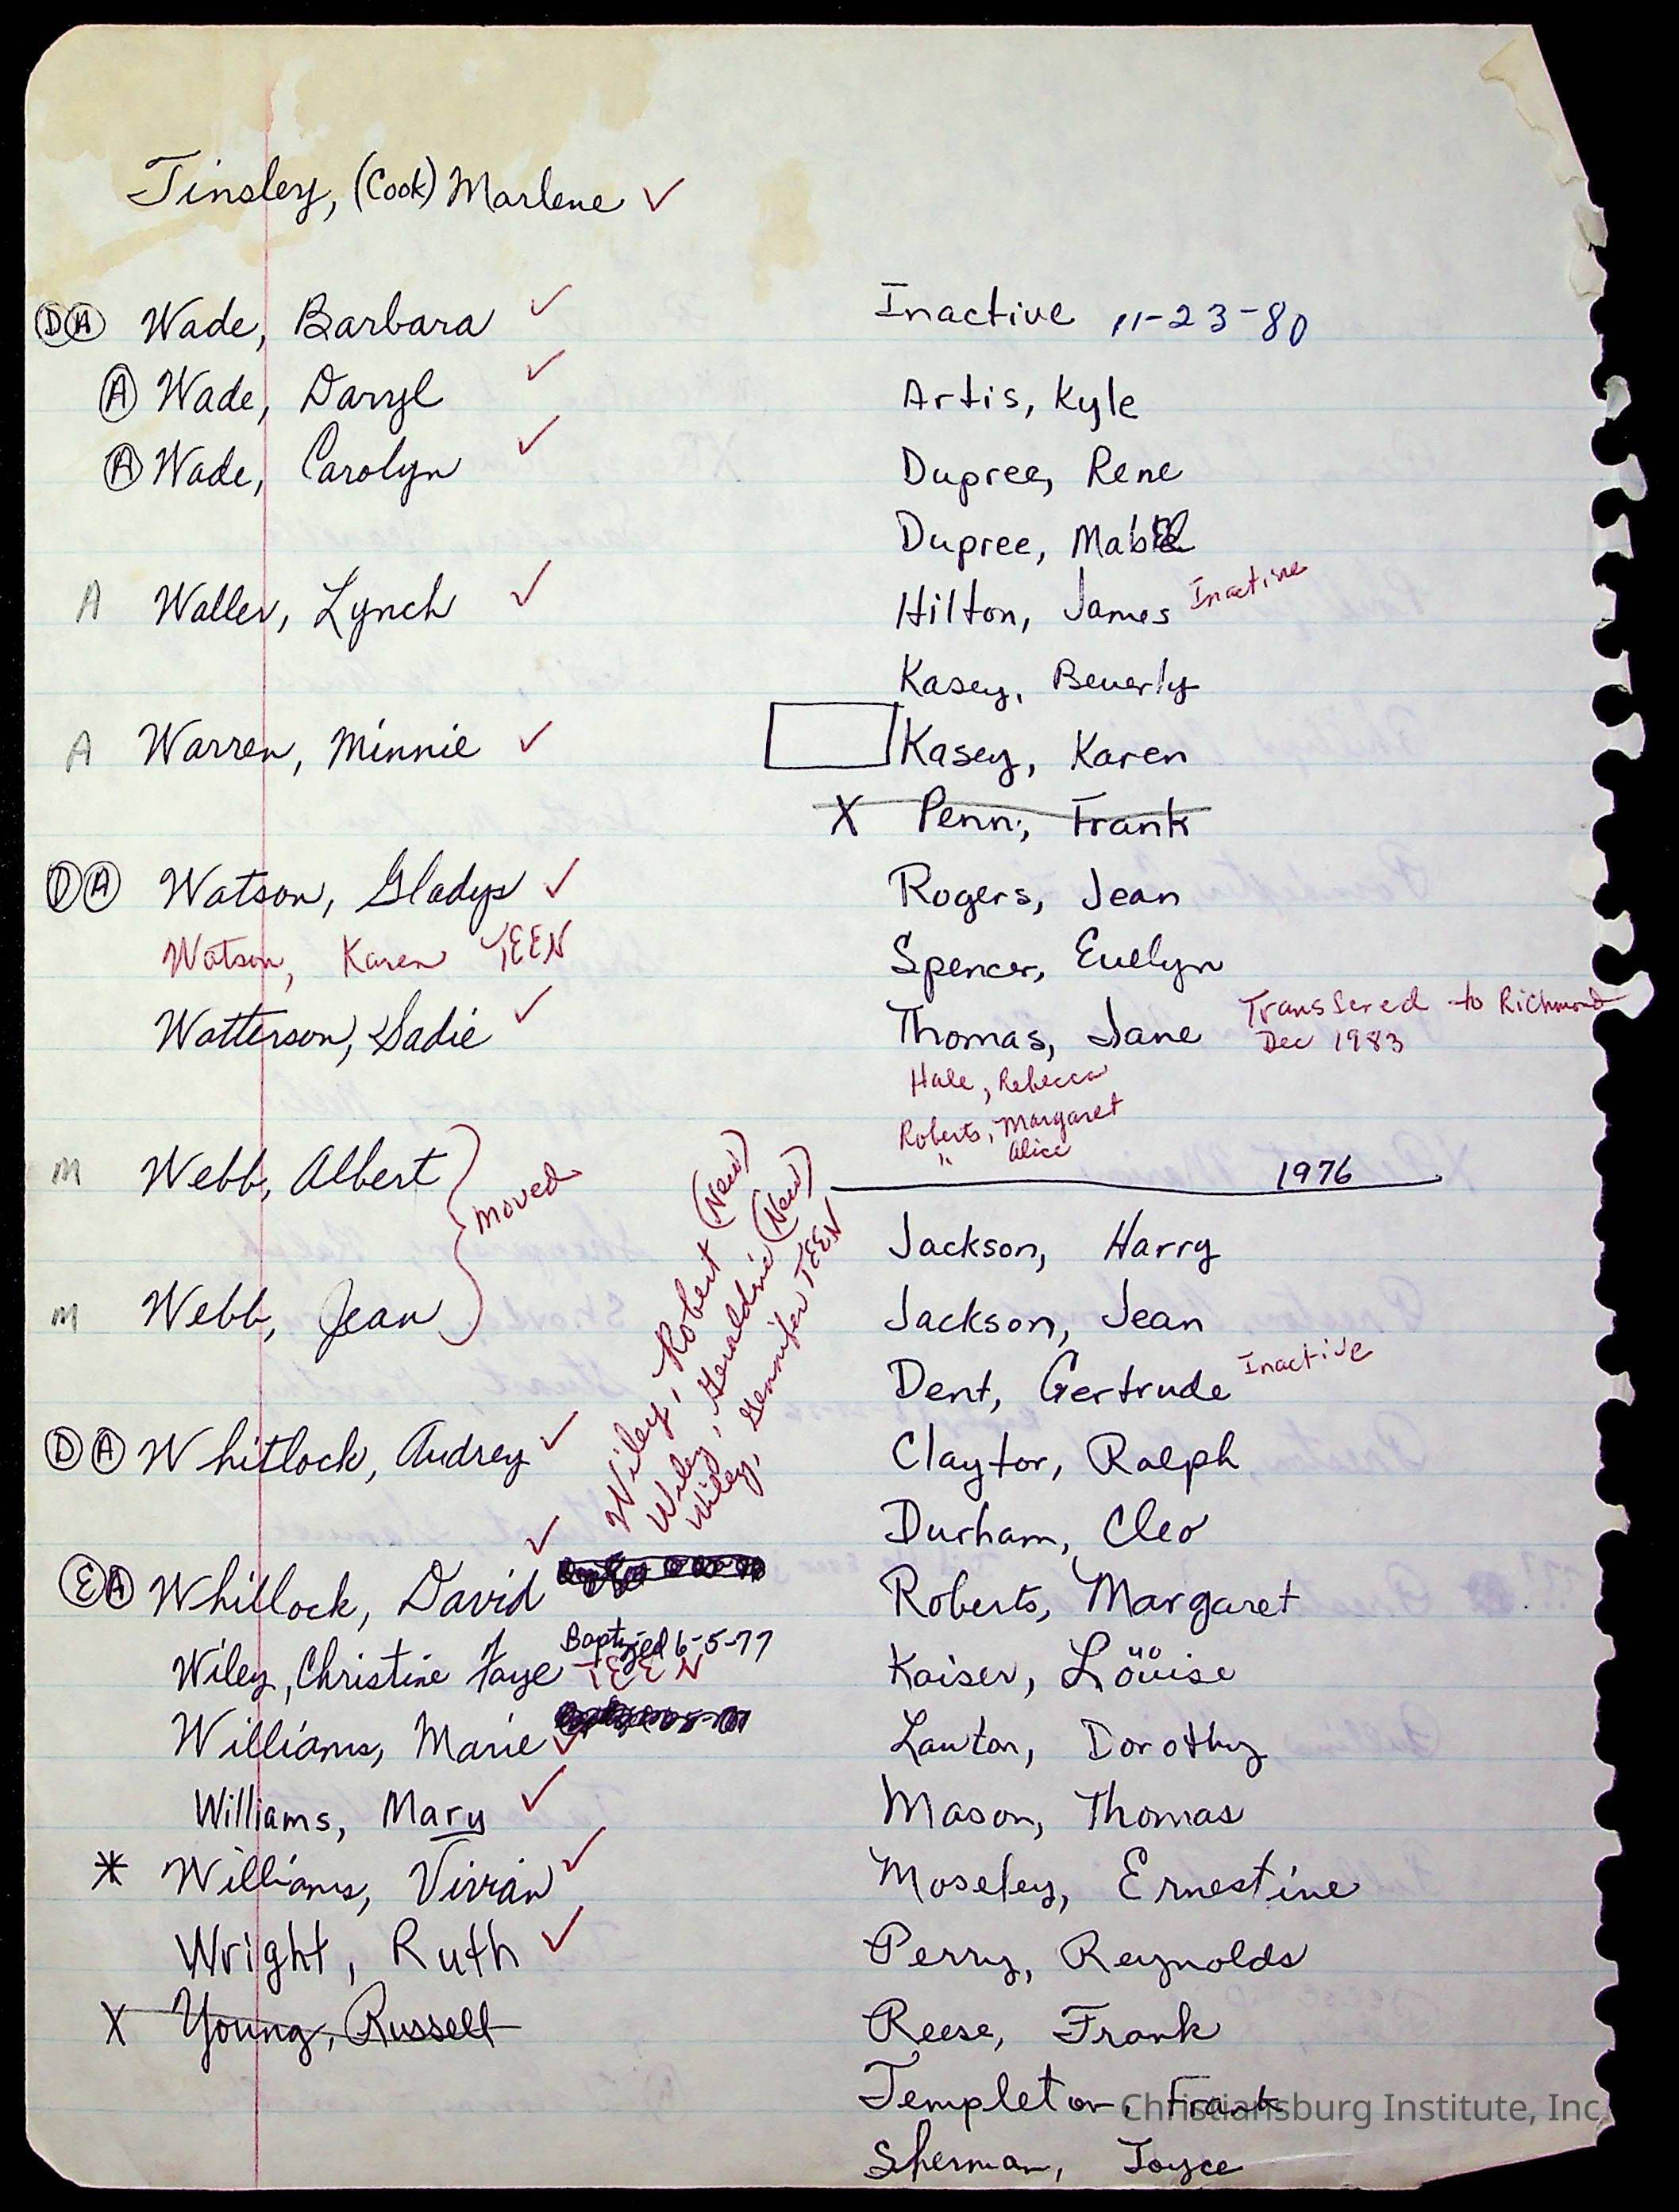 Tinsley, (Cook) Marlene ✓
DA Wade, Barbara ✓
A Wade, Daryl ✓
A Wade, Carolyn ✓
A Waller, Lynch ✓
A Warren, Minnie ✓
DA Watson, Gladys ✓
Watson, Karen TEEN
Watterson, Sadie ✓
M Webb, Albert
moved
M Webb, Jean
DA Whitlock, Audrey ✓
Wiley, Robert (New)
Wiley, Geraldine (New)
Wiley, Gennifer TEEN
EA Whitlock, David ✓
Baptized 6-5-77
Wiley, Christine Faye TEEN
Williams, Marie ✓
Williams, Mary ✓
* Williams, Vivian ✓
Wright, Ruth ✓
X Young, Russell
Inactive 11-23-80
Artis, Kyle
Dupree, Rene
Dupree, Mabel
Hilton, James Inactive
Kasey, Beverly
Kasey, Karen
X Penn, Frank
Rogers, Jean
Spencer, Evelyn
Thomas, Jane Transfered to Richmond
Dec 1983
Hale, Rebecca
Roberts, Margaret
" Alice
1976
Jackson, Harry
Jackson, Jean
Dent, Gertrude Inactive
Claytor, Ralph
Durham, Cleo
Roberts, Margaret
Kaiser, Louise
Lawton, Dorothy
Mason, Thomas
Moseley, Ernestine
Perry, Reynolds
Reese, Frank
Templeton, Frank
Sherman, Joyce
Christiansburg Institute, Inc.